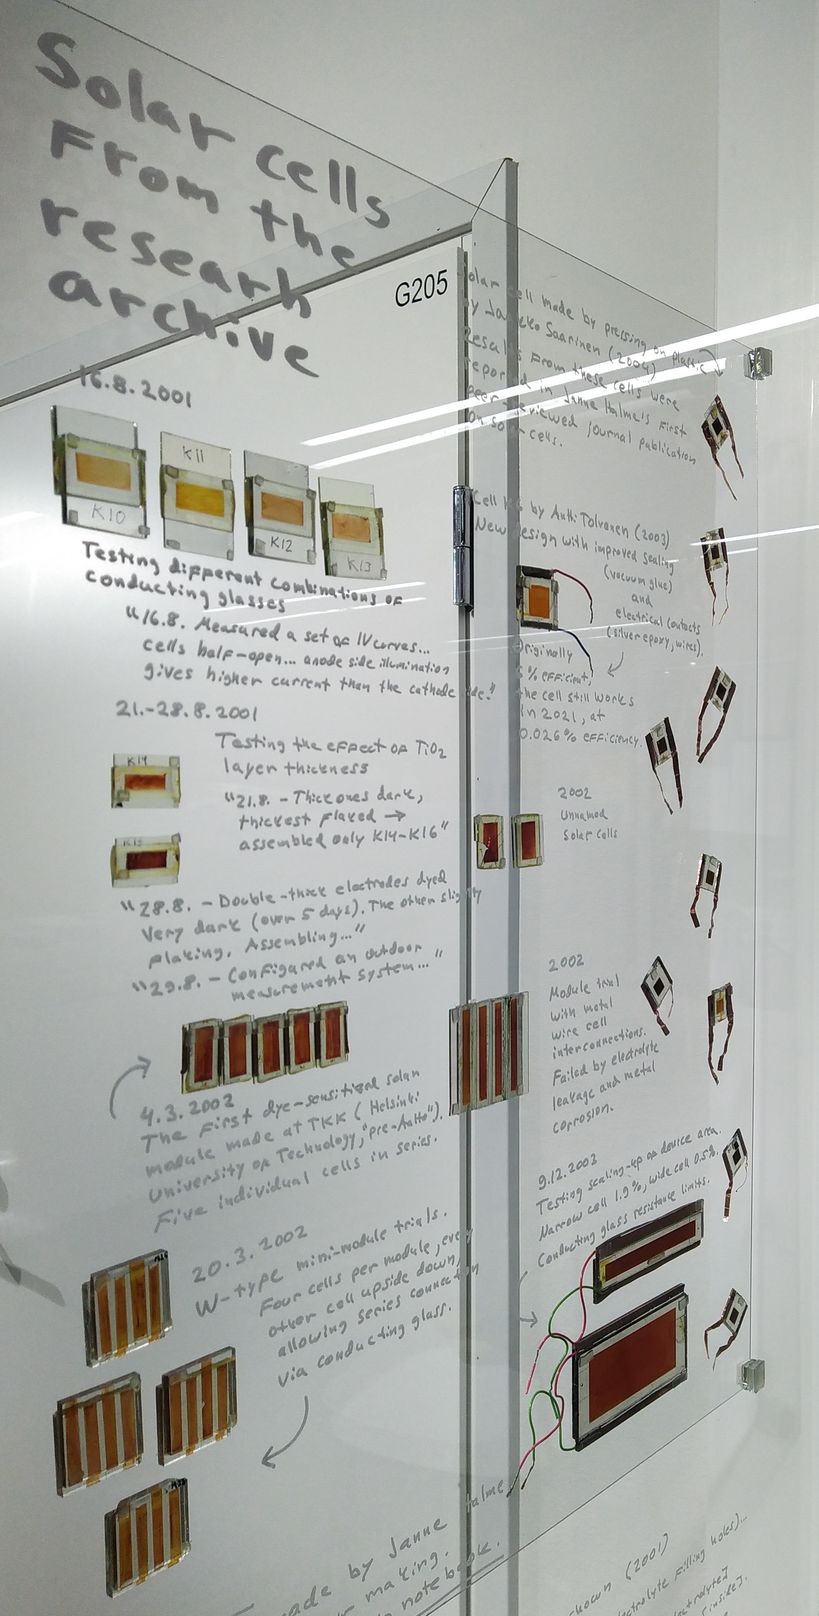 Solar cells
From the
researh
archive
G205
16.8.2001
K10
K11
K12
K13
Testing different combinations of
conducting glasses
"16.8. Measured a set of IV curves...
cells half-open... anode side illumination
gives higher current than the cathode
21.-28.8.2001
Testing the effect of TiO2
layer thickness
K14
"21.8. - Thick ones dark,
thickest flaked →
assembled only K14-K16"
"28.8. - Double-thick electrodes dyed
very dark (over 5 days). The other slightly
flaking. Assembling..."
"29.8. - Configured an outdoor
measurement system..."
4.3.2002
The first dye-sensitized solar
module made at TKK (Helsinki
University of Technology, "pre-Aalto").
Five individual cells in series.
20.3.2002
W-type mini-module trials.
Four cells per module, every
other cell upside down,
allowing series connection
via conducting glass.
made by Janne Halme
making.
notebook.
Solar cell made by pressing on plastic
by Jarkko Saarinen (2004)
Results from these cells were
reported in Janne Halme's first
peer-reviewed journal publication
on solar cells.
Cell by Antti Tolvanen (2003)
New design with improved sealing
(vacuum glue)
and
electrical contacts
(silver epoxy, wires).
Originally
% efficient,
the cell still works
in 2021, at
0.026% efficiency.
2002
Unnamed
Solar cells
2002
Module trial
with metal
wire cell
interconnections.
Failed by electrolyte
leakage and metal
corrosion.
9.12.2003
Testing scaling-up of device area.
Narrow cell 1.9%, wide cell 0.5%.
Conducting glass resistance limits.
(2001)
filling holes)...